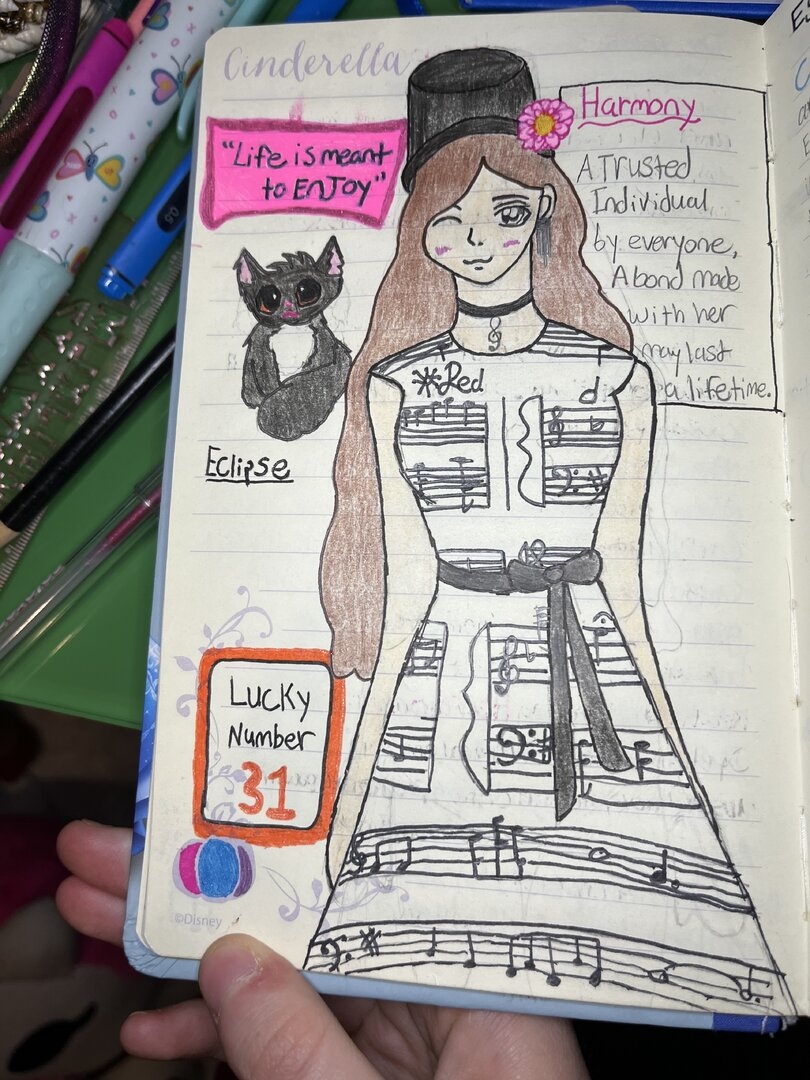 Cinderella
"Life is meant
to Enjoy"
Harmony
A Trusted
Individual
by everyone,
A bond made
with her
may last
a lifetime.
*Red
Eclipse
Lucky
Number
31
©Disney